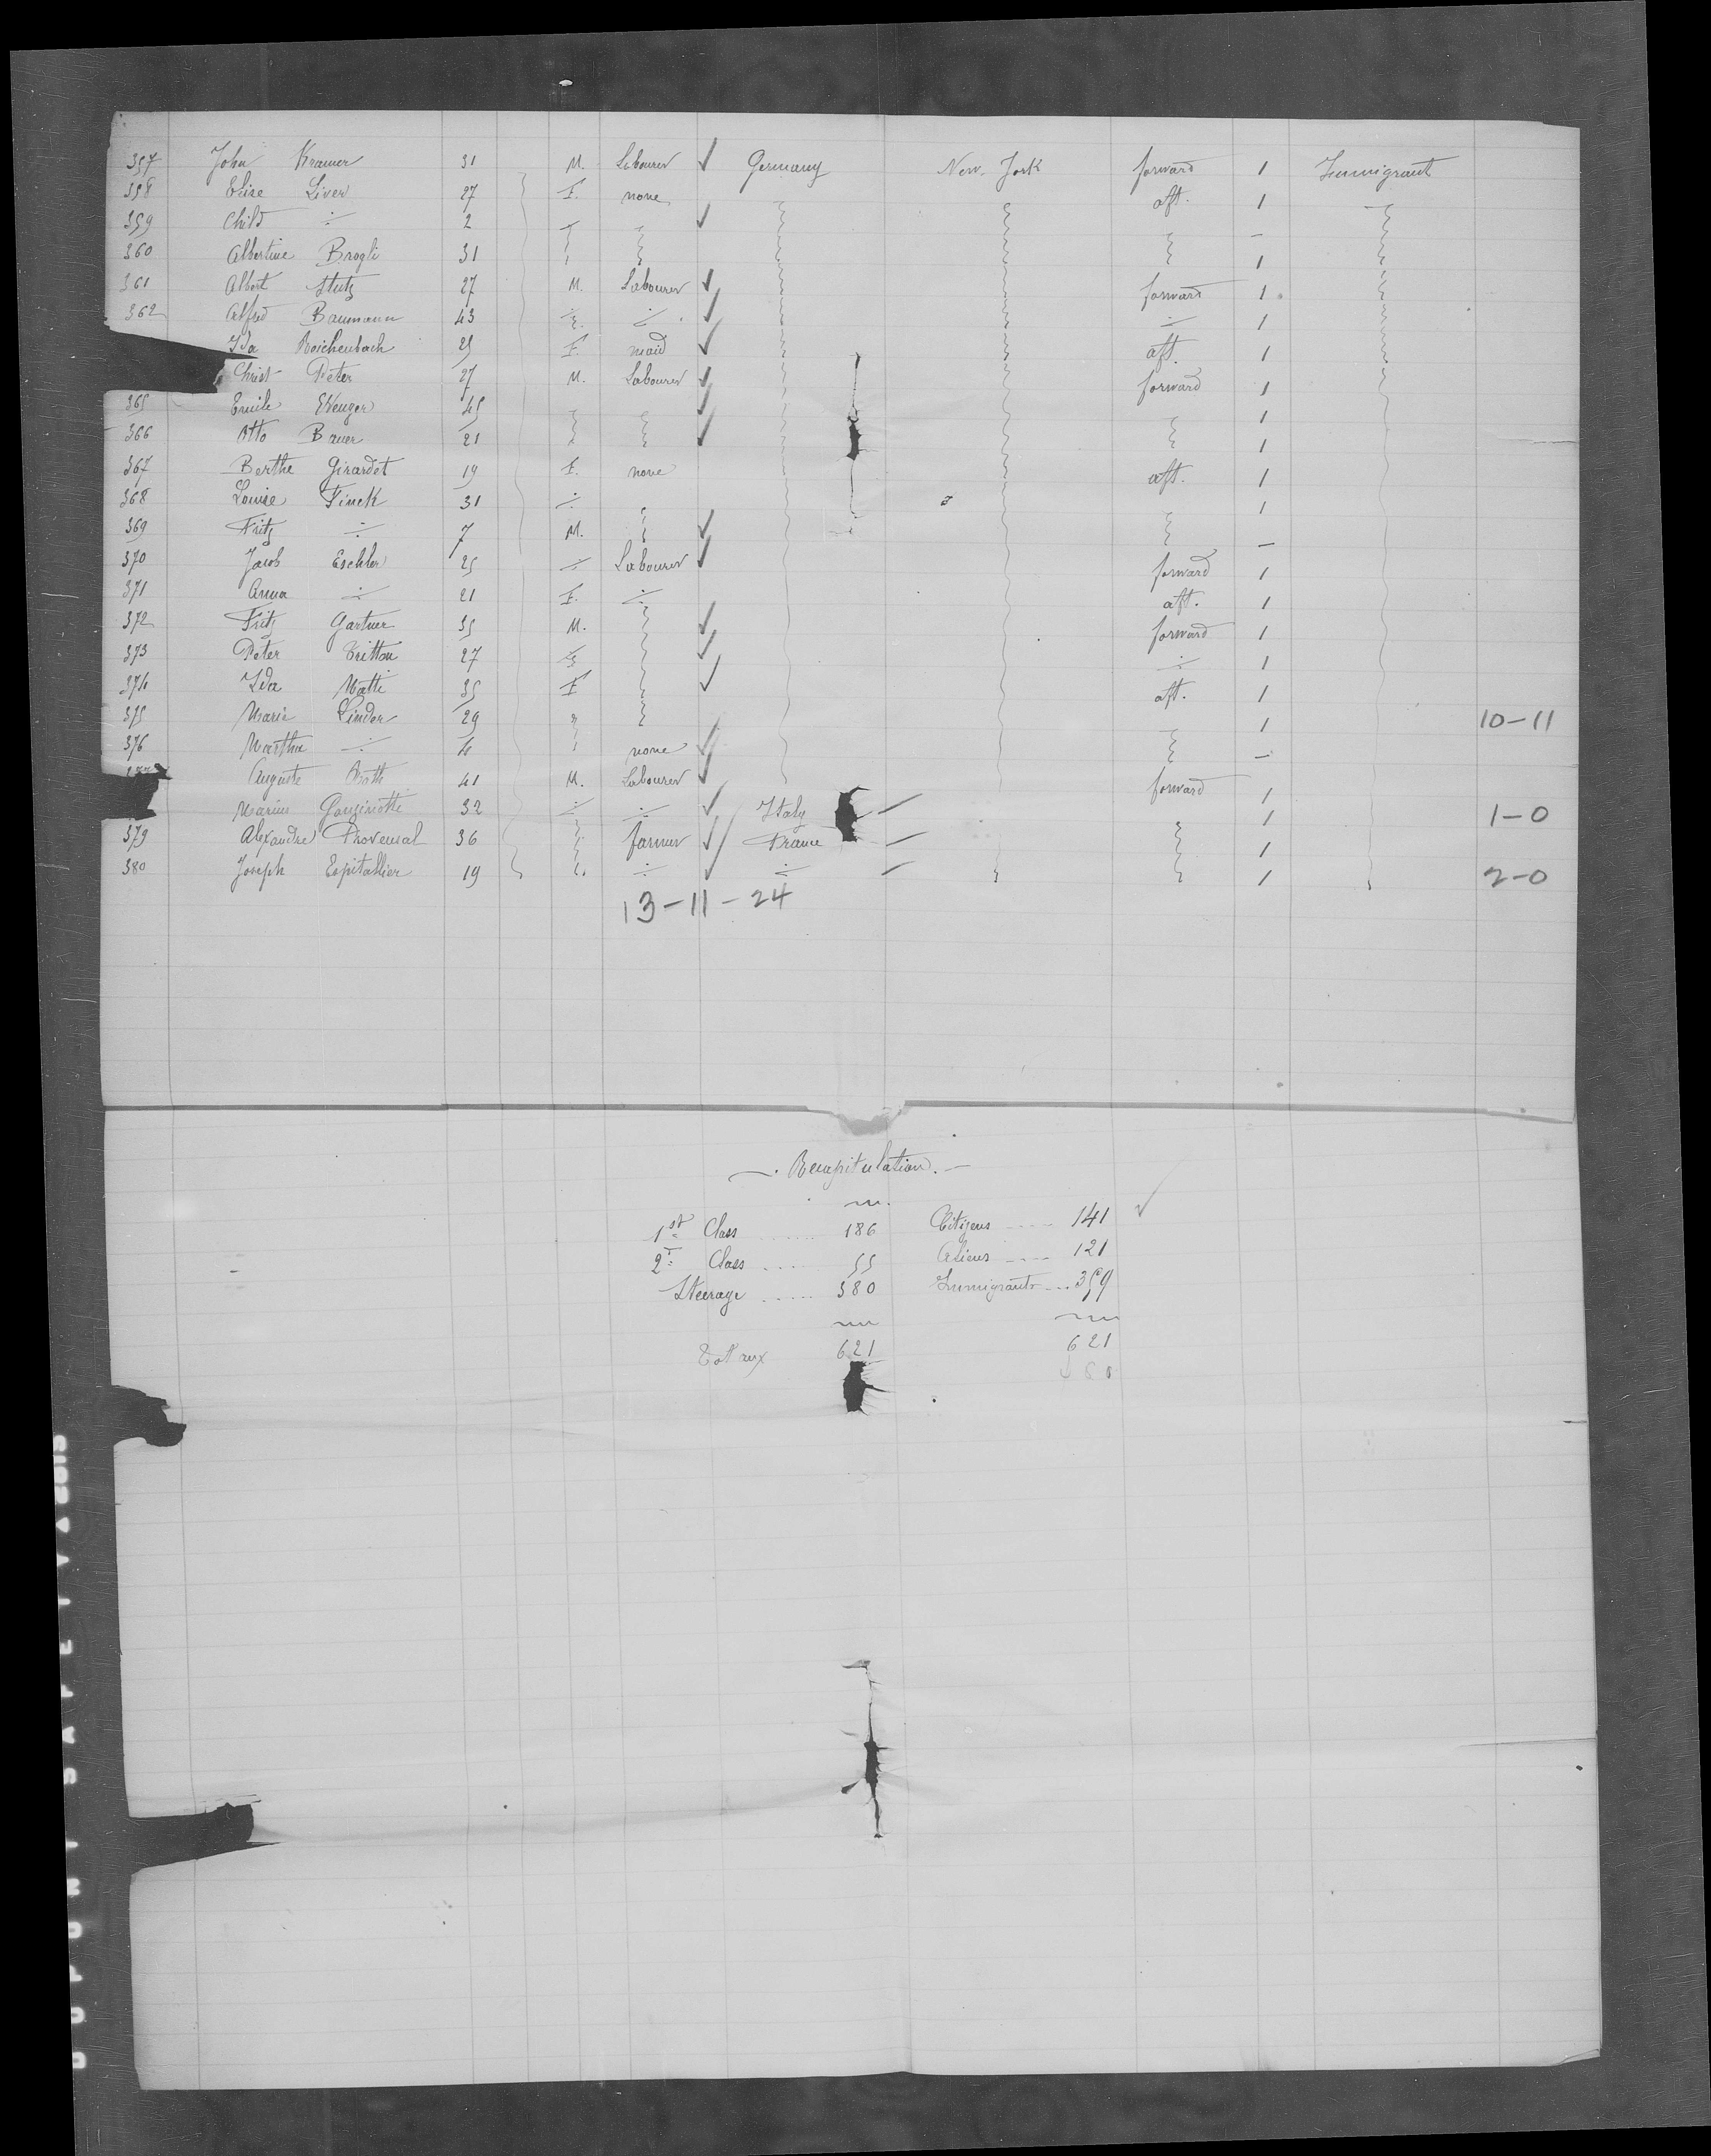 357 John Kramer 31 M. Labourer ✓ Germany New-York forward 1 Immigrant
358 Elise Liver 27 F. none aft. 1
359 Child ÷ 2 ✓ –
360 Albertine Brogli 31 1
361 Albert Stutz 27 M. Labourer ✓ forward 1
362 Alfred Baumann 43 ÷ ✓ ÷ 1
Ida Reichenbach 25 F. maid ✓ aft. 1
Christ Peter 27 M. Labourer ✓ forward 1
365 Emile 45 ✓ 1
366 Otto Bauer 21 ✓ 1
367 Berthe Girardet 19 F. none aft. 1
368 Louise Finck 31 ÷ 1
369 Fritz ÷ 7 M. ✓ –
370 Jacob Eschler 25 ÷ Labourer ✓ forward 1
371 Anna ÷ 21 F. ÷ aft. 1
372 Fritz Gartner 35 M. ✓ forward 1
373 Peter Tritton 27 ✓ ÷ 1
374 Ida Matti 35 F ✓ aft. 1
375 Maria Linder 29 1 10-11
376 Martha ÷ 4 none ✓ –
Auguste Roth 41 M. Labourer ✓ forward 1
Marius 32 ÷ ÷ ✓ Italy 1 1-0
379 Alexandre Provensal 36 farmer ✓ France 1
380 Joseph Espitallier 19 ÷ ✓ ÷ 1 2-0
13-11-24
Recapitulation.
1st Class 186 Citizens 141 ✓
2d Class 55 Aliens 121
Steerage 380 Immigrants 359
Totaux 621 621